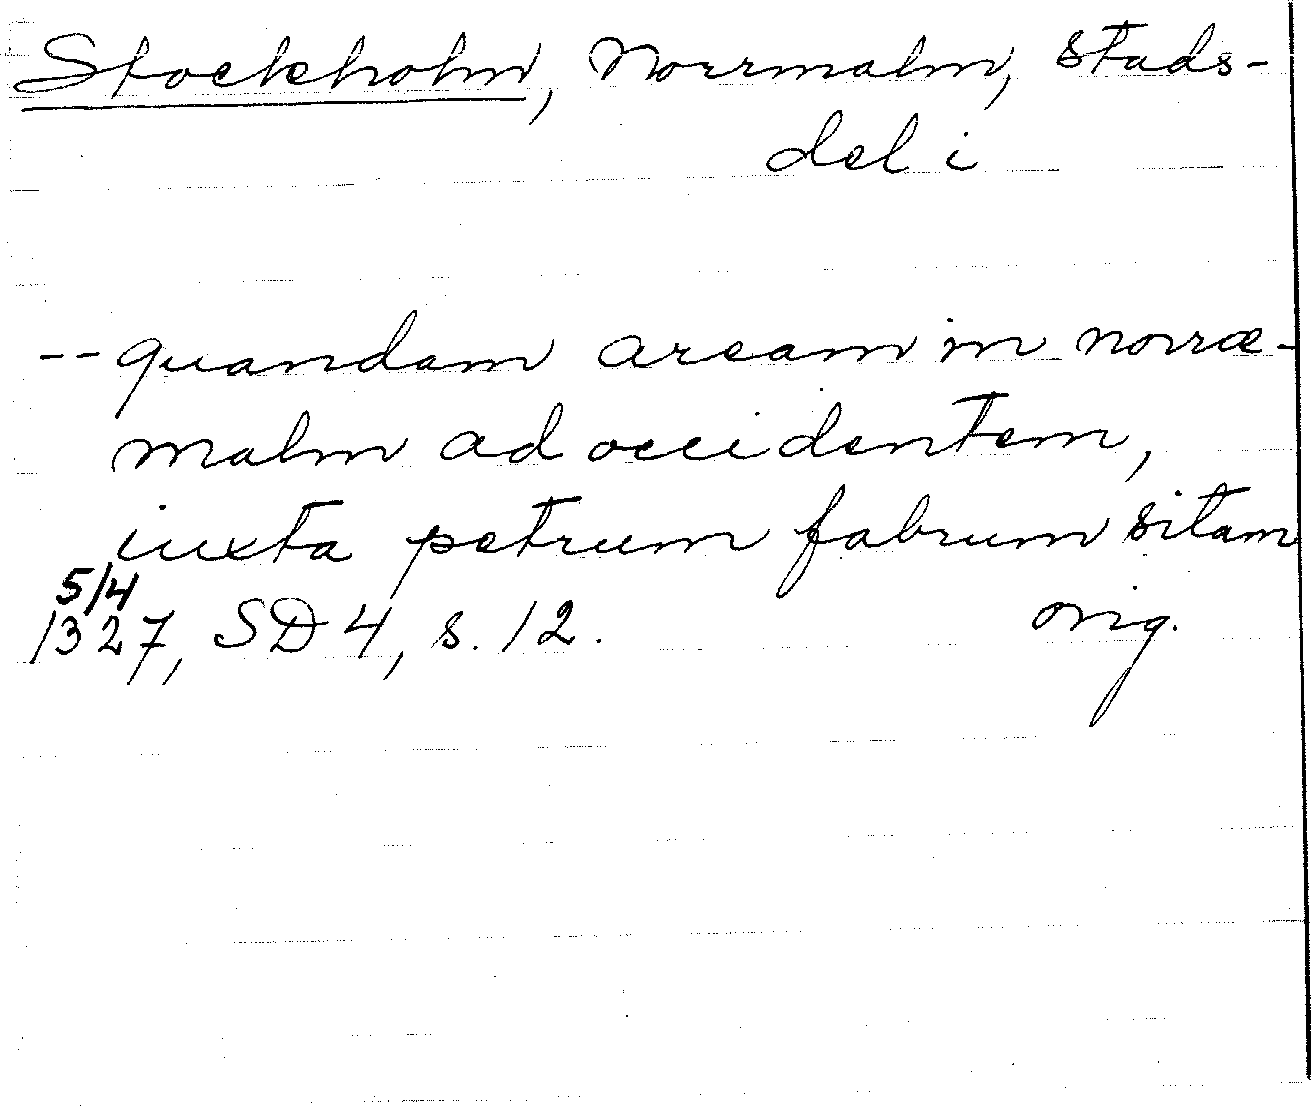 Stockholm, Norrmalm, stads-
del i
-- quandam aream in norræ-
malm ad occidentem,
iuxta petrum fabrum sitam
5/4
1327, SD 4, s. 12. orig.